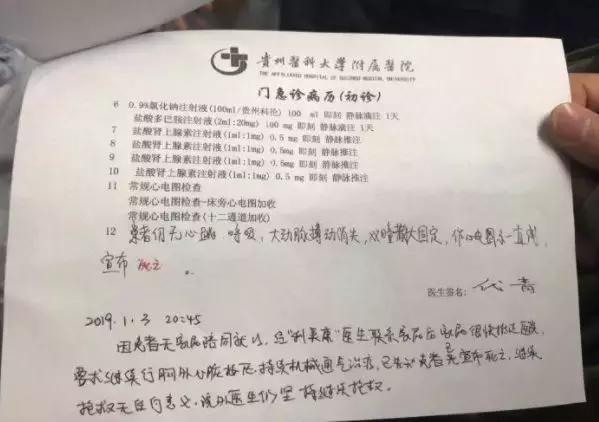 贵州醫科大學附属醫院
THE AFFILIATED HOSPITAL OF GUIZHOU MEDICAL UNIVERSITY
门急诊病历(初诊)
6 0.9%氯化钠注射液(100ml/贵州科伦) 100 ml 即刻 静脉滴注 1天
盐酸多巴胺注射液(2ml:20mg) 100 mg 即刻 静脉滴注 1天
7 盐酸肾上腺素注射液(1ml:1mg) 0.5 mg 即刻 静脉推注
8 盐酸肾上腺素注射液(1ml:1mg) 0.5 mg 即刻 静脉推注
9 盐酸肾上腺素注射液(1ml:1mg) 0.5mg 即刻 静脉推注
10 盐酸肾上腺素注射液(1ml:1mg) 0.5 mg 即刻 静脉推注
11 常规心电图检查
常规心电图检查-床旁心电图加收
常规心电图检查(十二通道加收)
12 患者仍无心跳、呼吸，大动脉搏动消失，双瞳散大固定，心电图示一直线，
宣布死亡。
医生签名:
2019.1.3 20:45
因患者无家属陪同就诊，经“利美康”医生联系家属后家属很快抵达医院，
要求继续行胸外心脏按压，持续机械通气治疗，已告知患者宣布死亡，继续
抢救无任何意义，院外医生仍坚持继续抢救。